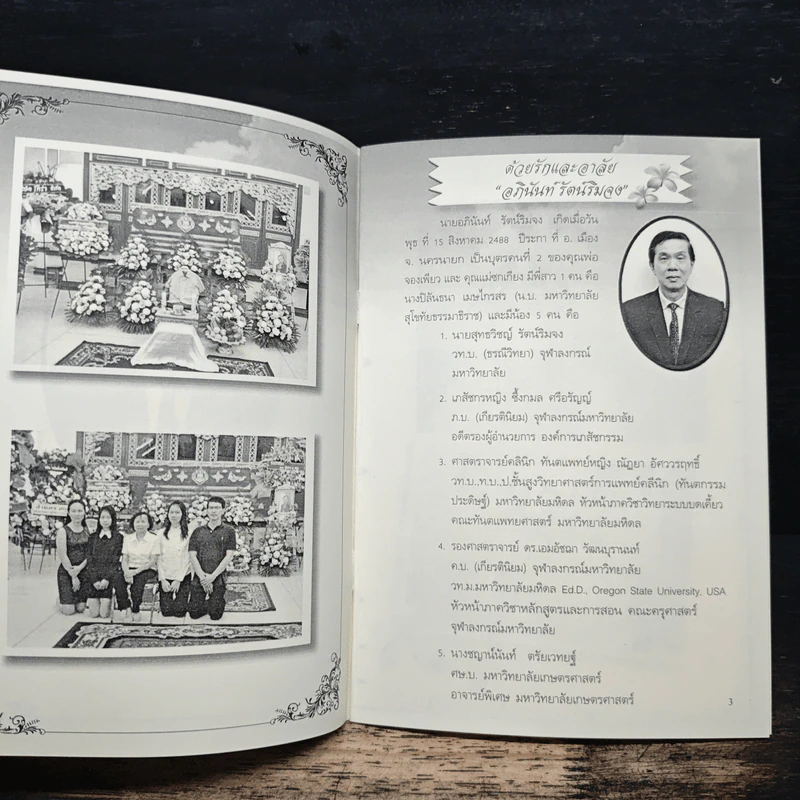 ด้วยรักและอาลัย
"อภินันท์ รัตน์ริมจง"
นายอภินันท์ รัตน์ริมจง เกิดเมื่อวัน
พุธ ที่ 15 สิงหาคม 2488 ปีระกา ที่ อ. เมือง
จ. นครนายก เป็นบุตรคนที่ 2 ของคุณพ่อ
จองเพียว และ คุณแม่ซกเกียง มีพี่สาว 1 คน คือ
นางปิลันธนา เมษไกรสร (น.บ. มหาวิทยาลัย
สุโขทัยธรรมาธิราช) และมีน้อง 5 คน คือ
1. นายสุทธวิชญ์ รัตน์ริมจง
วท.บ. (ธรณีวิทยา) จุฬาลงกรณ์
มหาวิทยาลัย
2. เภสัชกรหญิง ซึ้งกมล ศรีอรัญญ์
ภ.บ. (เกียรตินิยม) จุฬาลงกรณ์มหาวิทยาลัย
อดีตรองผู้อำนวยการ องค์การเภสัชกรรม
3. ศาสตราจารย์คลินิก ทันตแพทย์หญิง ณัฎยา อัศววรฤทธิ์
วท.บ.,ท.บ.,ป.ชั้นสูงวิทยาศาสตร์การแพทย์คลีนิก (ทันตกรรม
ประดิษฐ์) มหาวิทยาลัยมหิดล หัวหน้าภาควิชาวิทยาระบบบดเคี้ยว
คณะทันตแพทยศาสตร์ มหาวิทยาลัยมหิดล
4. รองศาสตราจารย์ ดร.เอมอัชฌา วัฒนบุรานนท์
ค.บ. (เกียรตินิยม) จุฬาลงกรณ์มหาวิทยาลัย
วท.ม.มหาวิทยาลัยมหิดล Ed.D., Oregon State University. USA
หัวหน้าภาควิชาหลักสูตรและการสอน คณะครุศาสตร์
จุฬาลงกรณ์มหาวิทยาลัย
5. นางชญาน์นันท์ ตรัยเวทยฐ์
ศษ.บ. มหาวิทยาลัยเกษตรศาสตร์
อาจารย์พิเศษ มหาวิทยาลัยเกษตรศาสตร์
3